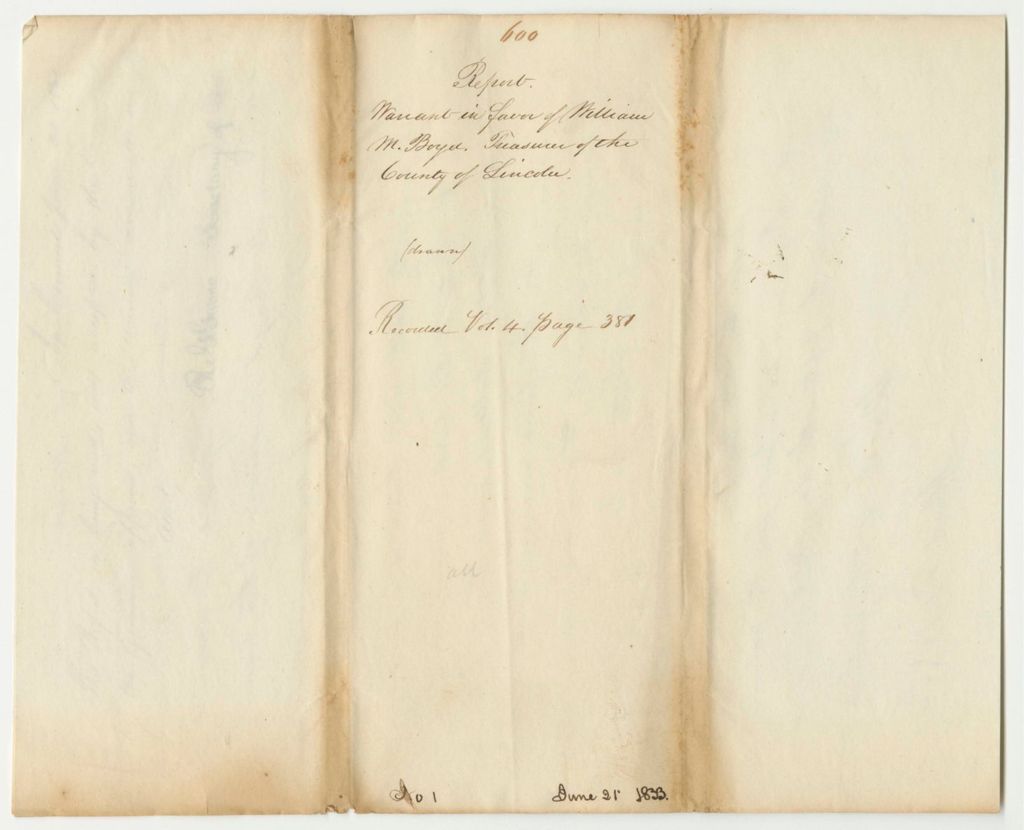 600
Report.
Warrant in favor of William
M. Boyd, Treasurer of the
County of Lincoln.
(drawn)
Recorded Vol. 4. page 381
No 1
June 21 1833.